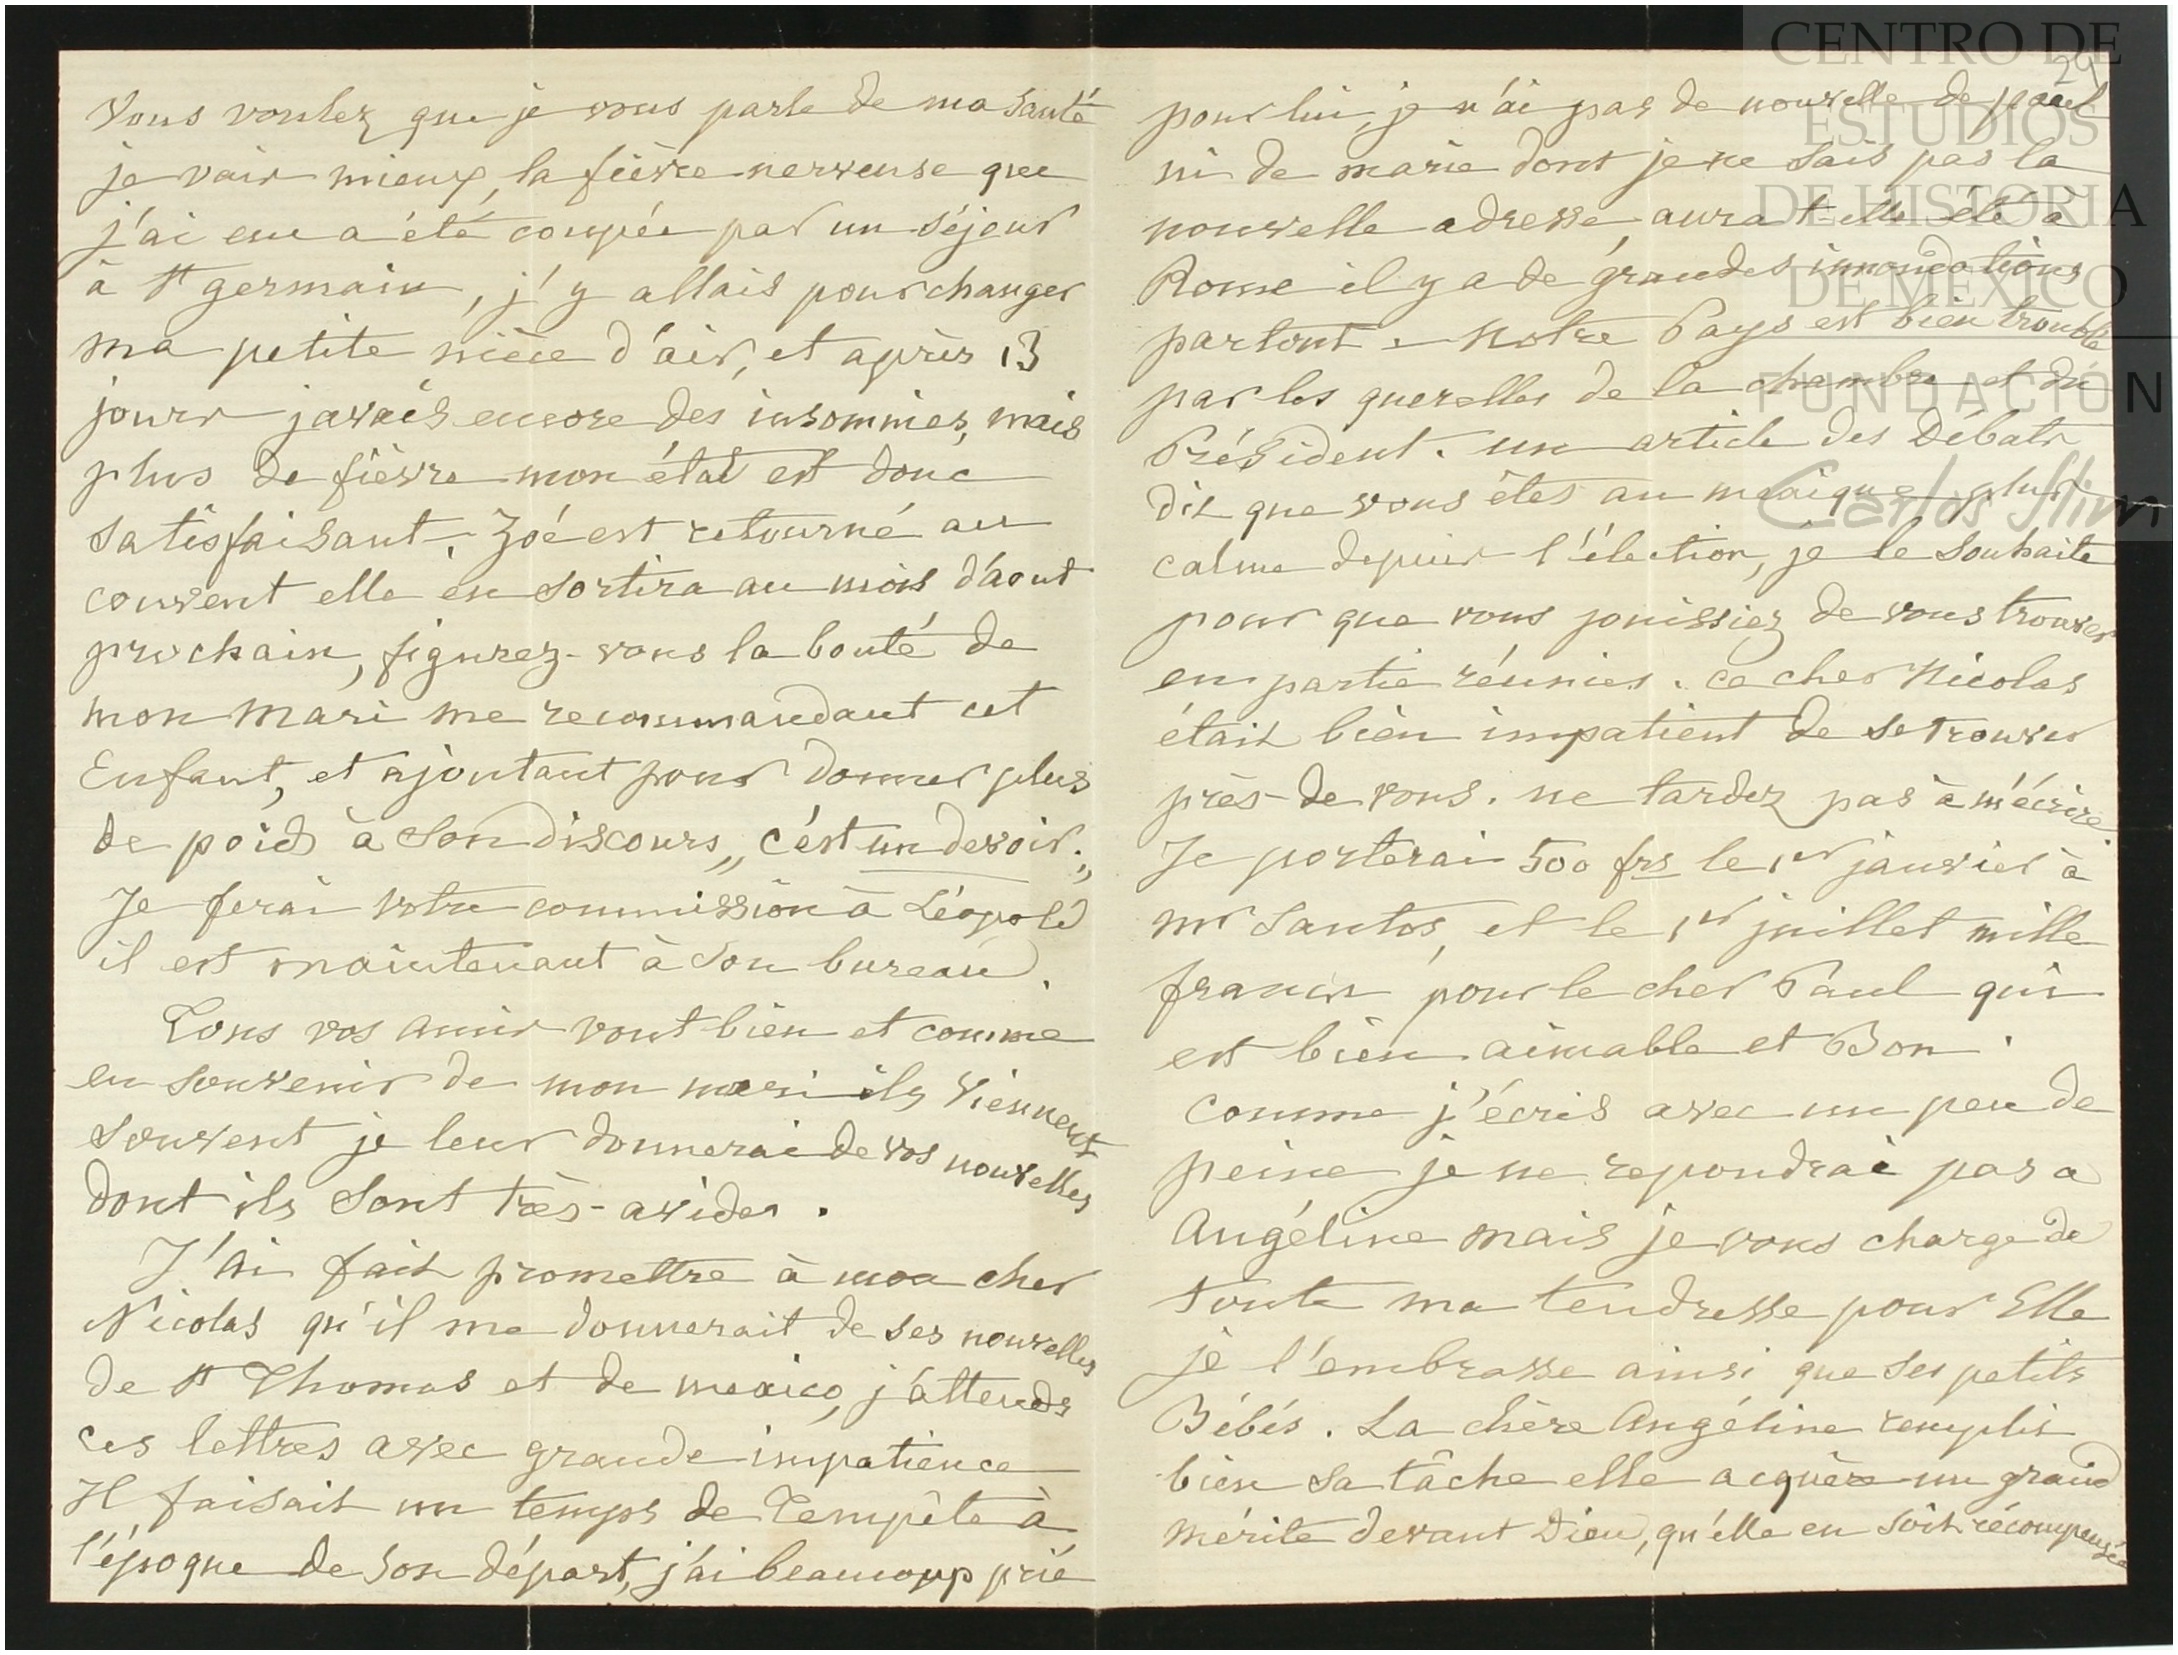 Vous voulez que je vous parle de ma santé
je vais mieux, la fièvre nerveuse que
j'ai eue a été coupée par un séjour
à St germain, j'y allais pour changer
ma petite nièce d'air, et après 13
jours j'avais encore des insomnies, mais
plus de fièvre mon état est donc
satisfaisant. Zoé est retourné au
couvent elle en sortira au mois d'aout
prochain, figurez-vous la bonté de
mon mari me recommandant cet
Enfant, et ajoutant pour donner plus
de poids à son discours,, c'est un devoir.,,
Je ferai votre commission à Léopold
il est maintenant à son bureau.
Tous vos amis vont bien et comme
en souvenir de mon mari ils viennent
souvent je leur donnerai de vos nouvelles
dont ils sont très-avides.
J'ai fait promettre à mon cher
Nicolas qu'il me donnerait de ses nouvelles
de St Thomas et de mexico, j'attends
ces lettres avec grande impatience
Il faisait un temps de Tempête à
l'époque de son départ, j'ai beaucoup prié
29
pour lui, je n'ai pas de nouvelle de paul
ni de marie dont je ne sais pas la
nouvelle adresse, aura t-elle été à
Rome il y a de grandes innondations
partout. Notre Pays est bien troublé
par les querelles de la chambre et du
Président. un article des Débats
dit que vous êtes au mexique plus
calme depuis l'élection, je le souhaite
pour que vous jouissiez de vous trouver
en partie réunies. ce cher Nicolas
était bien impatient de se trouver
près-de vous. ne tardez pas à m'écrire
Je porterai 500 frs le 1er janvier à
mr Santos, et le 1er juillet mille
francs pour le cher Paul qui
est bien aimable et Bon.
Comme j'écris avec un peu de
peine je ne repondrai pas a
Angéline mais je vous charge de
toute ma tendresse pour Elle
je l'embrasse ainsi que ses petits
Bébés. La chère Angéline remplis
bien sa tâche elle acquère un grand
mérite devant Dieu, qu'elle en soit récompensée
CENTRO DE
ESTUDIOS
DE HISTORIA
DE MÉXICO
FUNDACIÓN
Carlos Slim